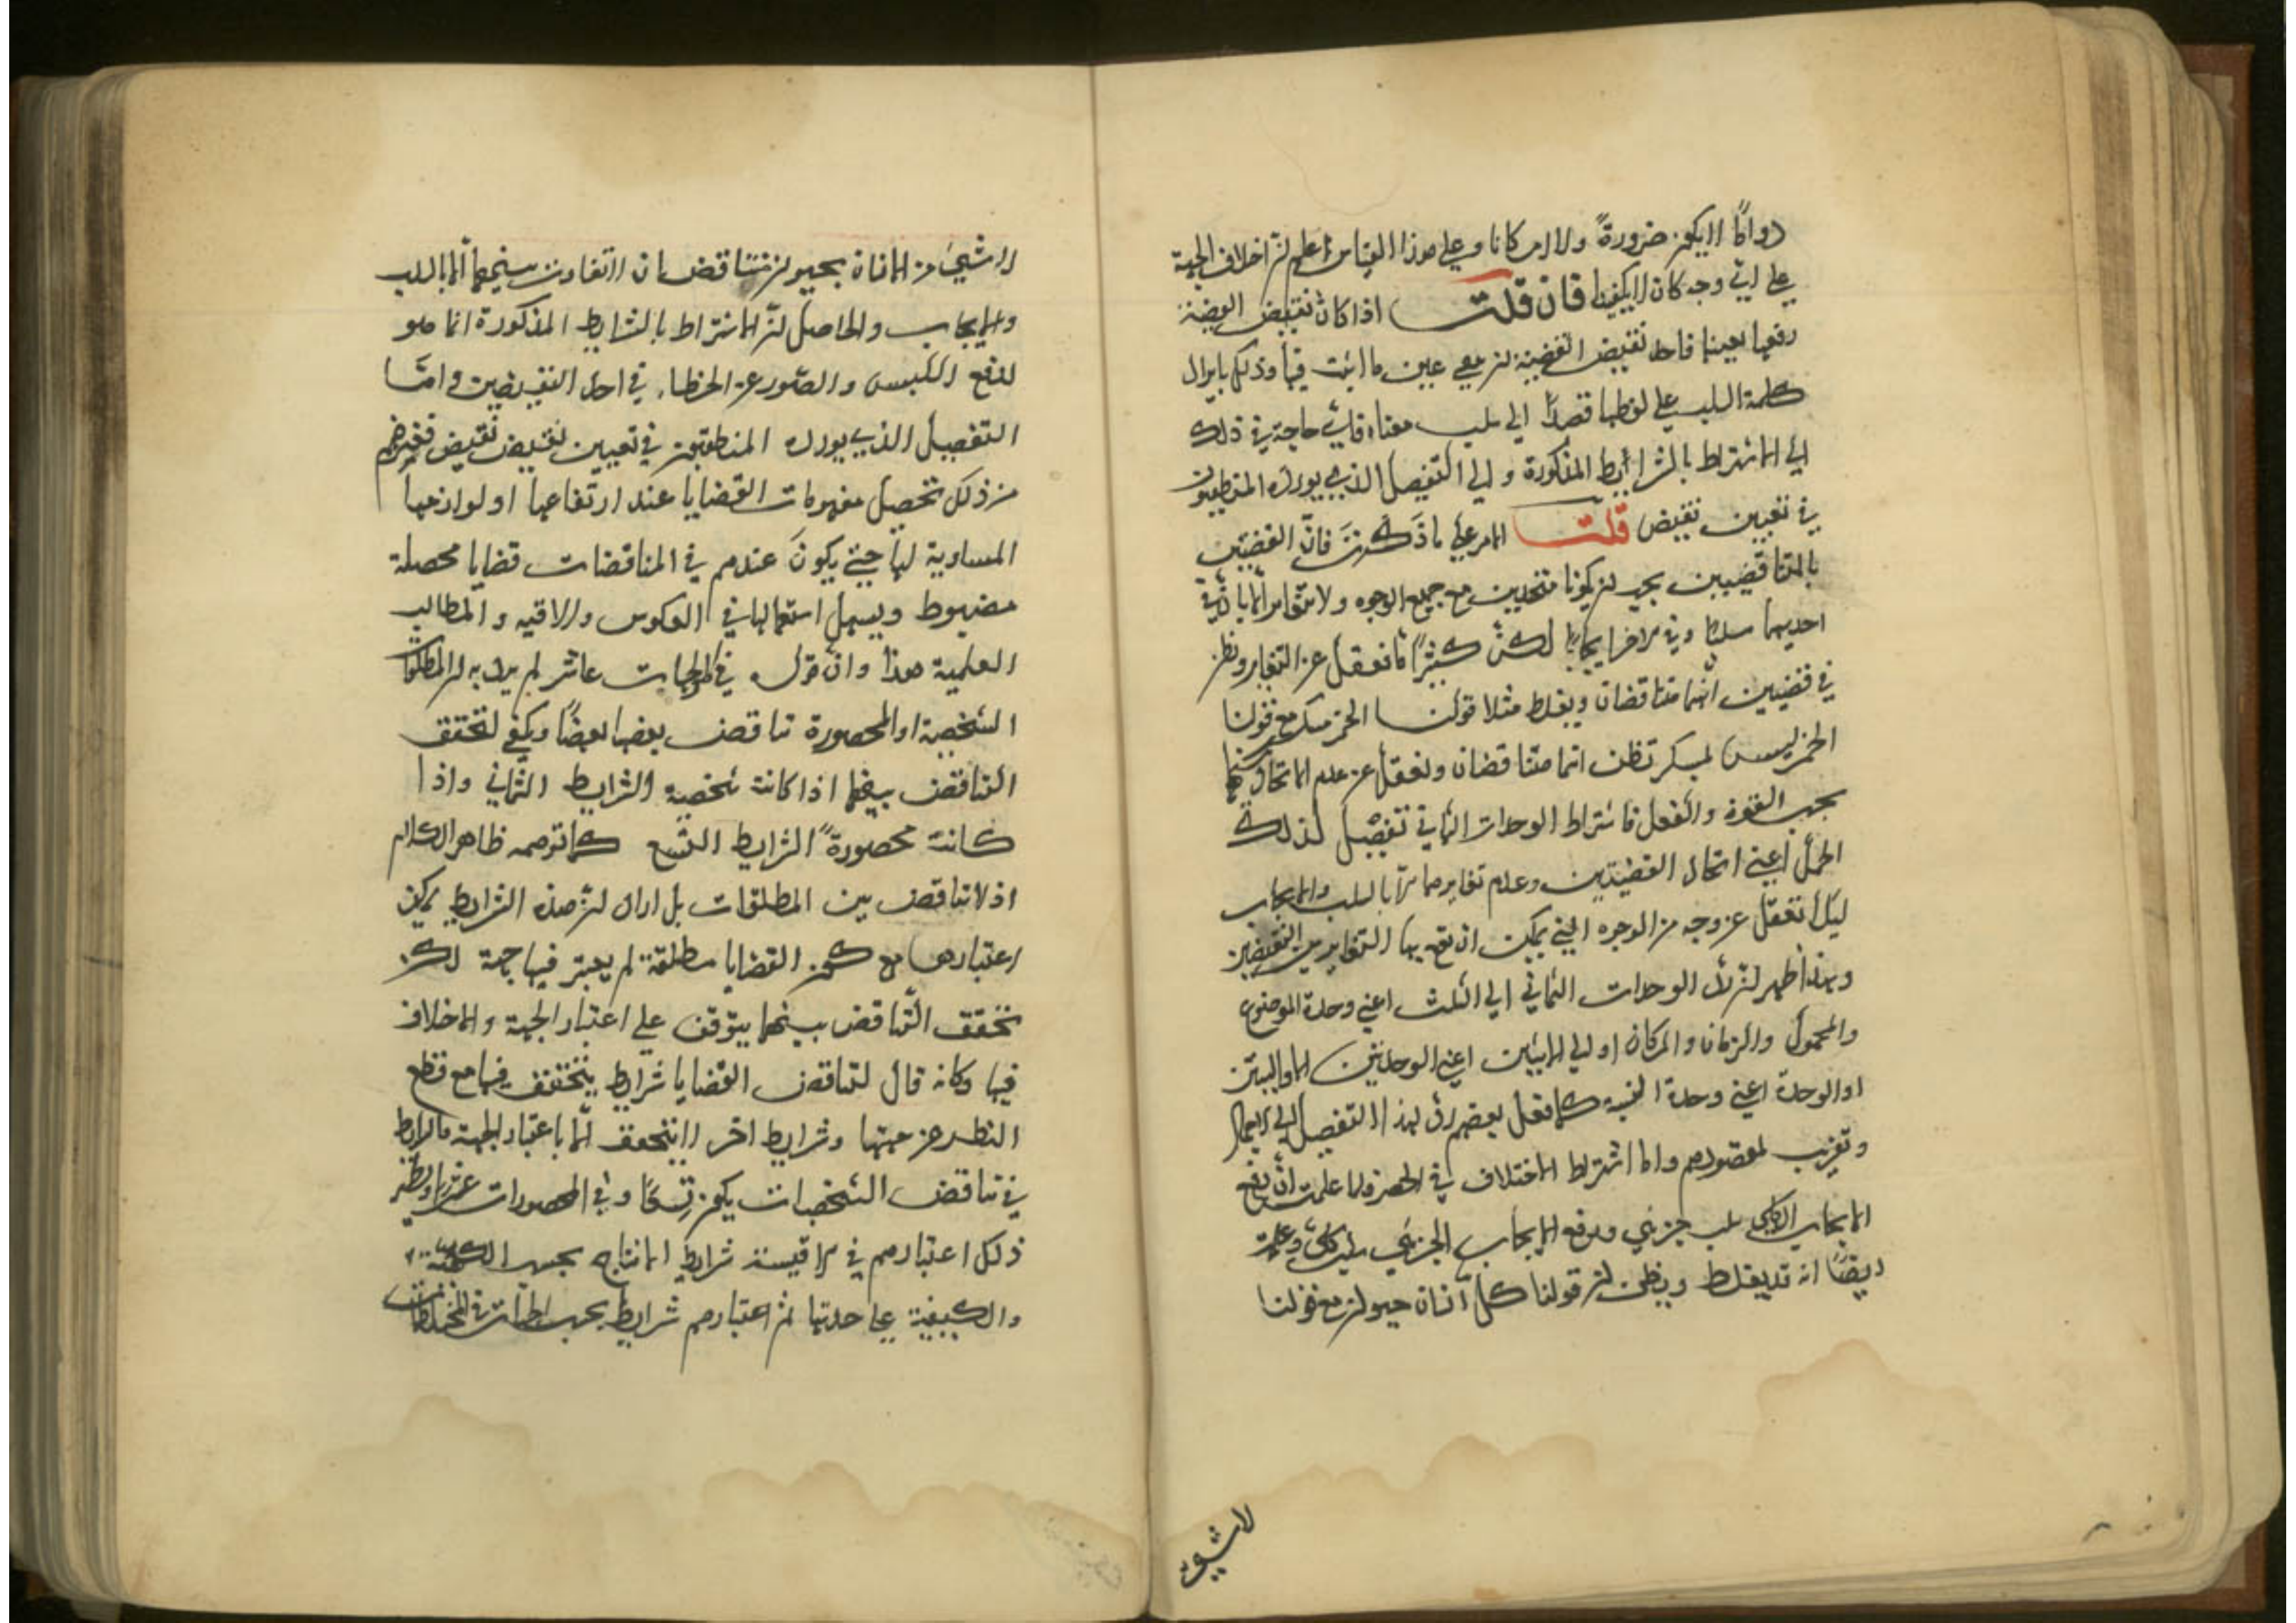 دواما لا يكون ضرورة ولا امكانا وعلى هذا القياس اعلم ان اختلاف الجهة
على اي وجه كان لا يكفي فان قلت اذا كان نقيض القضية
رفعها بعينها فاحد نقيض القضية ان يرفع عين ما اثبت فيها وذلك بايراد
كلمة السلب على لفظها قصدا الى سلب معناه فاي حاجة في ذلك
الى الاشتراط بالشرايط المذكورة والى التفصيل الذي يورده المنطقيون
في تعيين نقيض نقيض قلت الامر على ما ذكرت فان القضيتين
المتناقضيين يجب ان يكونا متحدين من جميع الوجوه ولا تتغايرا الا بان في
احديهما سلبا وفي الاخر ايجابا لكن كثيرا ما نغفل عن التغاير ونظن
في قضيتين انهما متناقضان ويغلط مثلا قولنا الخمر مسكر مع قولنا
الخمر ليس بمسكر تظن انهما متناقضان ونغفل عن عدم الاتحاد بينهما
بحسب القوة والفعل فاشتراط الوحدات الثمانية تفصيل لذلك
المجمل اعني اتحاد القضيتين وعدم تغايرهما الا بالسلب والايجاب
ليلا نغفل عن وجه من الوجوه التي يمكن ان يقع بها التغاير بين النقيضين
وبهذا ظهر ان رد الوحدات الثماني الى الثلث اعني وحدة الموضوع
والمحمول والزمان والمكان او الى الاثنين اعني الوحدتين الاوليين
او الوحدة اعني وحدة النسبة كما فعل بعضهم رد لهذا التفصيل الى الاجمال
وتفويت لمقصودهم واما اشتراط الاختلاف في الحصر فلما علمت ان رفع
الايجاب الكلي سلب جزئي ورفع الايجاب الجزئي سلب كلي وعلمت
ايضا انه قد يغلط ويظن ان قولنا كل انسان حيوان مع قولنا
لا شيء
لا شيء من الانسان بحيوان متناقضان لا تفاوت بينهما الا بالسلب
والايجاب والحاصل ان الاشتراط بالشرايط المذكورة انما هو
لدفع اللبس والصون عن الخطاء في احد النقيضين واما
التفصيل الذي يورده المنطقيون في تعيين نقيض نقيض فغرضهم
من ذلك تحصيل مفهومات القضايا عند ارتفاعها او لوازمها
المساوية لها حتى يكون عندهم في المناقضات قضايا محصلة
مضبوط ويسهل استعمالها في العكوس والاقيسة والمطالب
العلمية هذا وان قوله في الجهات عاشر لم يرد به ان المطلقات
الشخصية او المحصورة تناقض بعضها بعضا ويكفي لتحقق
التناقض بينهما اذا كانت شخصية الشرايط الثماني واذا
كانت محصورة الشرايط التسع كما توهمه ظاهر الكلام
اذ لا تناقض بين المطلقات بل اراد ان هذه الشرايط يمكن
اعتبارها مع كون القضايا مطلقة لم يعتبر فيها جهة لكن
تحقق التناقض بينهما يتوقف على اعتبار الجهة والاختلاف
فيها وكانه قال لتناقض القضايا شرايط يتحقق فيها مع قطع
النظر عن جهتها وشرايط اخر لا يتحقق الا باعتبار الجهة فالشرايط
في تناقض الشخصيات يكون تسعا وفي المحصورات عشرا ونظير
ذلك اعتبارهم في الاقيسة شرايط الانتاج بحسب الكمية
والكيفية على حدتها ثم اعتبارهم شرايط بحسب الجهات في المختلطات